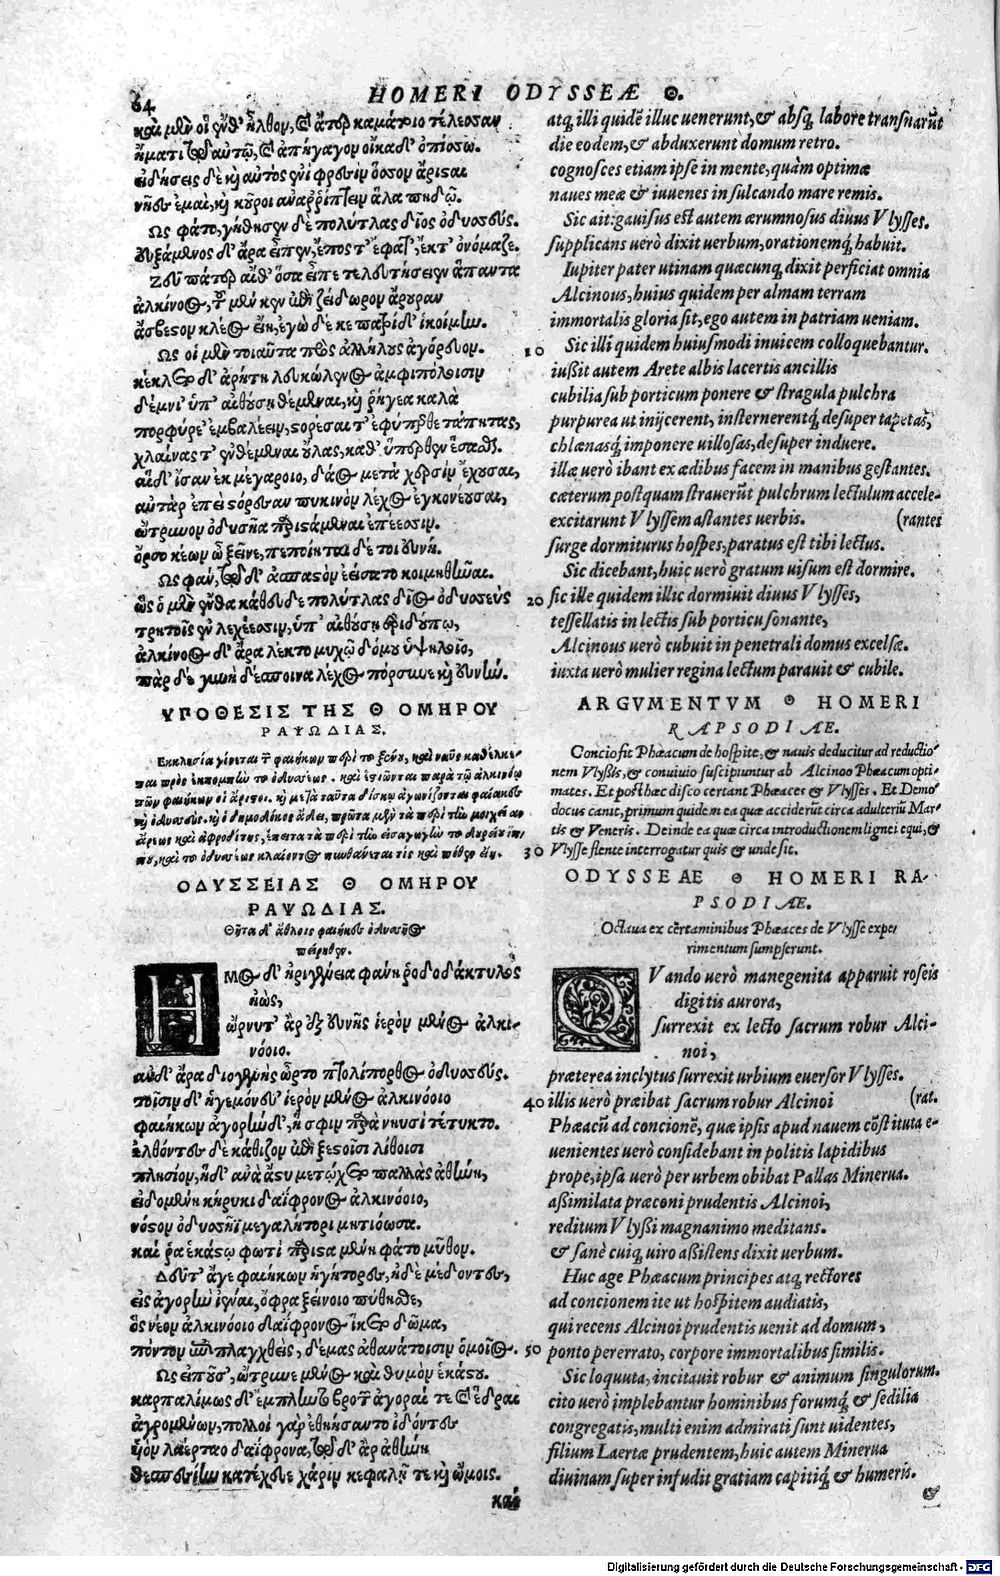 64
HOMERI ODYSSEÆ Θ.
καὶ μὲν οἱ ἔνθ' ἦλθον, καὶ ἄτερ καμάτοιο τέλεσσαν
ἤματι τῷ δ' αὐτῷ, καὶ ἀπήγαγον οἴκαδ' ὀπίσσω.
εἰδήσεις δὲ καὶ αὐτὸς ἐνὶ φρεσὶν ὅσσον ἄρισαι
νῆες ἐμαὶ, καὶ κοῦροι ἀναῤῥίπτειν ἅλα πηδῷ.
Ως φάτο, γήθησεν δὲ πολύτλας δῖος ὀδυσσεύς.
εὐξάμενος δ' ἄρα εἶπεν, ἔπος τ' ἔφατ', ἔκ τ' ὀνόμαζε.
Ζεῦ πάτερ αἴθ' ὅσα εἶπε τελευτήσειεν ἅπαντα
ἀλκίνοος, τοῦ μέν κεν ἐπὶ ζείδωρον ἄρουραν
ἄσβεσον κλέος εἴη, ἐγὼ δέ κε πατρίδ' ἱκοίμην.
Ως οἱ μὲν τοιαῦτα πρὸς ἀλλήλους ἀγόρευον.
κέκλετο δ' ἀρήτη λευκώλενος ἀμφιπόλοισιν
δέμνι' ὑπ' αἰθούσῃ θέμεναι, καὶ ῥήγεα καλὰ
πορφύρε' ἐμβαλέειν, σορέσαι τ' ἐφύπερθε τάπητας,
χλαίνας τ' ἐνθέμεναι οὔλας, καθ' ὕπερθεν ἕσασθαι.
αἱ δ' ἴσαν ἐκ μεγάροιο, δάος μετὰ χερσὶν ἔχουσαι,
αὐτὰρ ἐπεὶ σόρεσαν πυκινὸν λέχος ἐγκονέουσαι,
ὤτρυνον ὀδυσῆα παρισάμεναι ἐπέεσσιν.
ὄρσο κέων ὦ ξεῖνε, πεποίηται δέ τοι εὐνή.
Ως φαν, τῷ δ' ἀσπασὸν ἐείσατο κοιμηθῆναι.
ὣς ὁ μὲν ἔνθα κάθευδε πολύτλας δῖος ὀδυσσεὺς
τρητοῖς ἐν λεχέεσσιν, ὑπ' αἰθούσῃ ἐριδούπῳ,
ἀλκίνοος δ' ἄρα λέκτο μυχῷ δόμου ὑψηλοῖο,
πὰρ δὲ γυνὴ δέσποινα λέχος πόρσυνε καὶ εὐνήν.
ΥΠΟΘΕΣΙΣ ΤΗΣ Θ ΟΜΗΡΟΥ
ΡΑΨΩΔΙΑΣ.
Εκκλησία γίνεται τῶν φαιήκων περὶ τοῦ ξένου, καὶ ναῦς καθέλκε-
ται πρὸς ἐκπομπὴν τοῦ ὀδυσσέως. καὶ ἑστιῶνται παρὰ τῷ ἀλκινόῳ
τῶν φαιήκων οἱ ἄριστοι. καὶ μετὰ ταῦτα δίσκῳ ἀγωνίζονται φαίακες
καὶ ὀδυσσεύς. καὶ ὁ δημόδοκος ἄδει, πρῶτα μὲν τὰ περὶ τὴν μοιχείαν
ἄρεως καὶ ἀφροδίτης, ἔπειτα τὰ περὶ τὴν εἰσαγωγὴν τοῦ δουρείου ἵπ-
που, καὶ τοῦ ὀδυσσέως κλαίοντος πυνθάνεται τίς καὶ πόθεν εἴη.
ΟΔΥΣΣΕΙΑΣ Θ ΟΜΗΡΟΥ
ΡΑΨΩΔΙΑΣ.
Θῆτα δ' ἀέθλοις φαιήκες ὀδυσσῆος
πείρηθεν.
ΗΜος δ' ἠριγένεια φάνη ῥοδοδάκτυλος
ἠὼς,
ὤρνυτ' ἄρ ἐξ εὐνῆς ἱερὸν μένος ἀλκι-
νόοιο.
ἂν δ' ἄρα διογενὴς ὦρτο πτολίπορθος ὀδυσσεύς.
τοῖσιν δ' ἡγεμόνευ' ἱερὸν μένος ἀλκινόοιο
φαιήκων ἀγορὴν δ', ἥ σφιν παρὰ νηυσὶ τέτυκτο.
ἐλθόντες δὲ κάθιζον ἐπὶ ξεσοῖσι λίθοισι
πλησίον, ἡ δ' ἀνὰ ἄσυ μετῴχετο παλλὰς ἀθήνη,
εἰδομένη κήρυκι δαΐφρονος ἀλκινόοιο,
νόσον ὀδυσσῆϊ μεγαλήτορι μητιόωσα.
καί ῥα ἑκάσῳ φωτὶ παρισαμένη φάτο μῦθον.
Δεῦτ' ἄγε φαιήκων ἡγήτορες, ἠδὲ μέδοντες,
εἰς ἀγορὴν ἰέναι, ὄφρα ξείνοιο πύθησθε,
ὃς νέον ἀλκινόοιο δαΐφρονος ἵκετο δῶμα,
πόντον ἐπιπλαγχθεὶς, δέμας ἀθανάτοισιν ὁμοῖος.
Ως εἰποῦσ', ὤτρυνε μένος καὶ θυμὸν ἑκάσου.
καρπαλίμως δ' ἔμπληντο βροτῶν ἀγοραί τε καὶ ἕδραι
ἀγρομένων, πολλοὶ γὰρ ἐθηήσαντο ἰδόντες
υἱὸν λαέρταο δαΐφρονα, τῷ δ' ἄρ ἀθήνη
θεσπεσίην κατέχευε χάριν κεφαλῇ τε καὶ ὤμοις.
καί
atq; illi quidē illuc uenerunt, & absq; labore transnarūt
die eodem, & abduxerunt domum retro.
cognosces etiam ipse in mente, quàm optimæ
naues meæ & iuuenes in sulcando mare remis.
Sic ait: gauisus est autem ærumnosus diuus Vlysses.
supplicans uerò dixit uerbum, orationemq; habuit.
Iupiter pater utinam quæcunq; dixit perficiat omnia
Alcinous, huius quidem per almam terram
immortalis gloria sit, ego autem in patriam ueniam.
10 Sic illi quidem huiusmodi inuicem colloquebantur.
iußit autem Arete albis lacertis ancillis
cubilia sub porticum ponere & stragula pulchra
purpurea ut inijcerent, insternerentq; desuper tapetas,
chlænasq; imponere uillosas, desuper induere.
illæ uerò ibant ex ædibus facem in manibus gestantes.
cæterum postquam strauerūt pulchrum lectulum accele-
excitarunt Vlyssem astantes uerbis. (rantes
surge dormiturus hospes, paratus est tibi lectus.
Sic dicebant, huic uerò gratum uisum est dormire.
20 sic ille quidem illic dormiuit diuus Vlysses,
tessellatis in lectis sub porticu sonante,
Alcinous uerò cubuit in penetrali domus excelsæ.
iuxta uerò mulier regina lectum parauit & cubile.
ARGVMENTVM Θ HOMERI
RAPSODIAE.
Concio fit Phæacum de hospite, & nauis deducitur ad reductio-
nem Vlyßis, & conuiuio suscipiuntur ab Alcinoo Phæacum opti-
mates. Et posthæc disco certant Phæaces & Vlysses. Et Demo
docus canit, primum quidem ea quæ acciderūt circa adulteriū Mar-
tis & Veneris. Deinde ea quæ circa introductionem lignei equi, &
30 Vlysse flente interrogatur quis & unde sit.
ODYSSEAE Θ HOMERI RA-
PSODIAE.
Octaua ex certaminibus Phæaces de Vlysse expe
rimentum sumpserunt.
QVando uerò manegenita apparuit roseis
digitis aurora,
surrexit ex lecto sacrum robur Alci-
noi,
præterea inclytus surrexit urbium euersor Vlysses.
40 illis uerò præibat sacrum robur Alcinoi (rat.
Phæacū ad concionē, quæ ipsis apud nauem cōstituta e-
uenientes uerò considebant in politis lapidibus
prope, ipsa uerò per urbem obibat Pallas Minerua.
aßimilata præconi prudentis Alcinoi,
reditum Vlyßi magnanimo meditans.
& sanè cuiq; uiro aßistens dixit uerbum.
Huc age Phæacum principes atq; rectores
ad concionem ite ut hospitem audiatis,
qui recens Alcinoi prudentis uenit ad domum,
50 ponto pererrato, corpore immortalibus similis.
Sic loquuta, incitauit robur & animum singulorum.
cito uerò implebantur hominibus forumq; & sedilia
congregatis, multi enim admirati sunt uidentes,
filium Laertæ prudentem, huic autem Minerua
diuinam super infudit gratiam capitiq; & humeris.
&
Digitalisierung gefördert durch die Deutsche Forschungsgemeinschaft - DFG